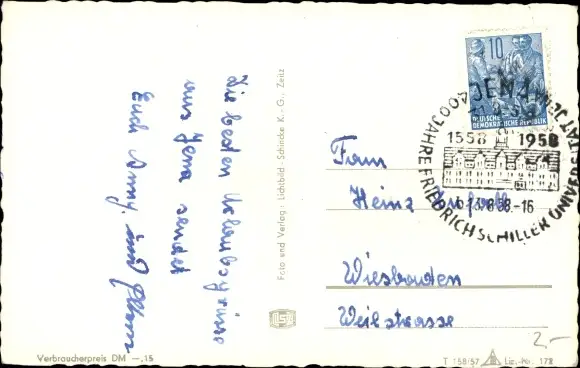 Die besten Urlaubsgrüsse
aus Jena sendet
Euch Anny und
Foto und Verlag: Lichtbild-Schincke K.-G., Zeitz
Verbraucherpreis DM —,15
10
DEUTSCHE
DEMOKRATISCHE REPUBLIK
JENA
400 JAHRE FRIEDRICH SCHILLER UNIVERSITÄT JENA
1558 1958
13.8.58.-16
Fam
Heinz
Wiesbaden
Weilstrasse
T 158/57 Liz.-Nr. 178
2.-